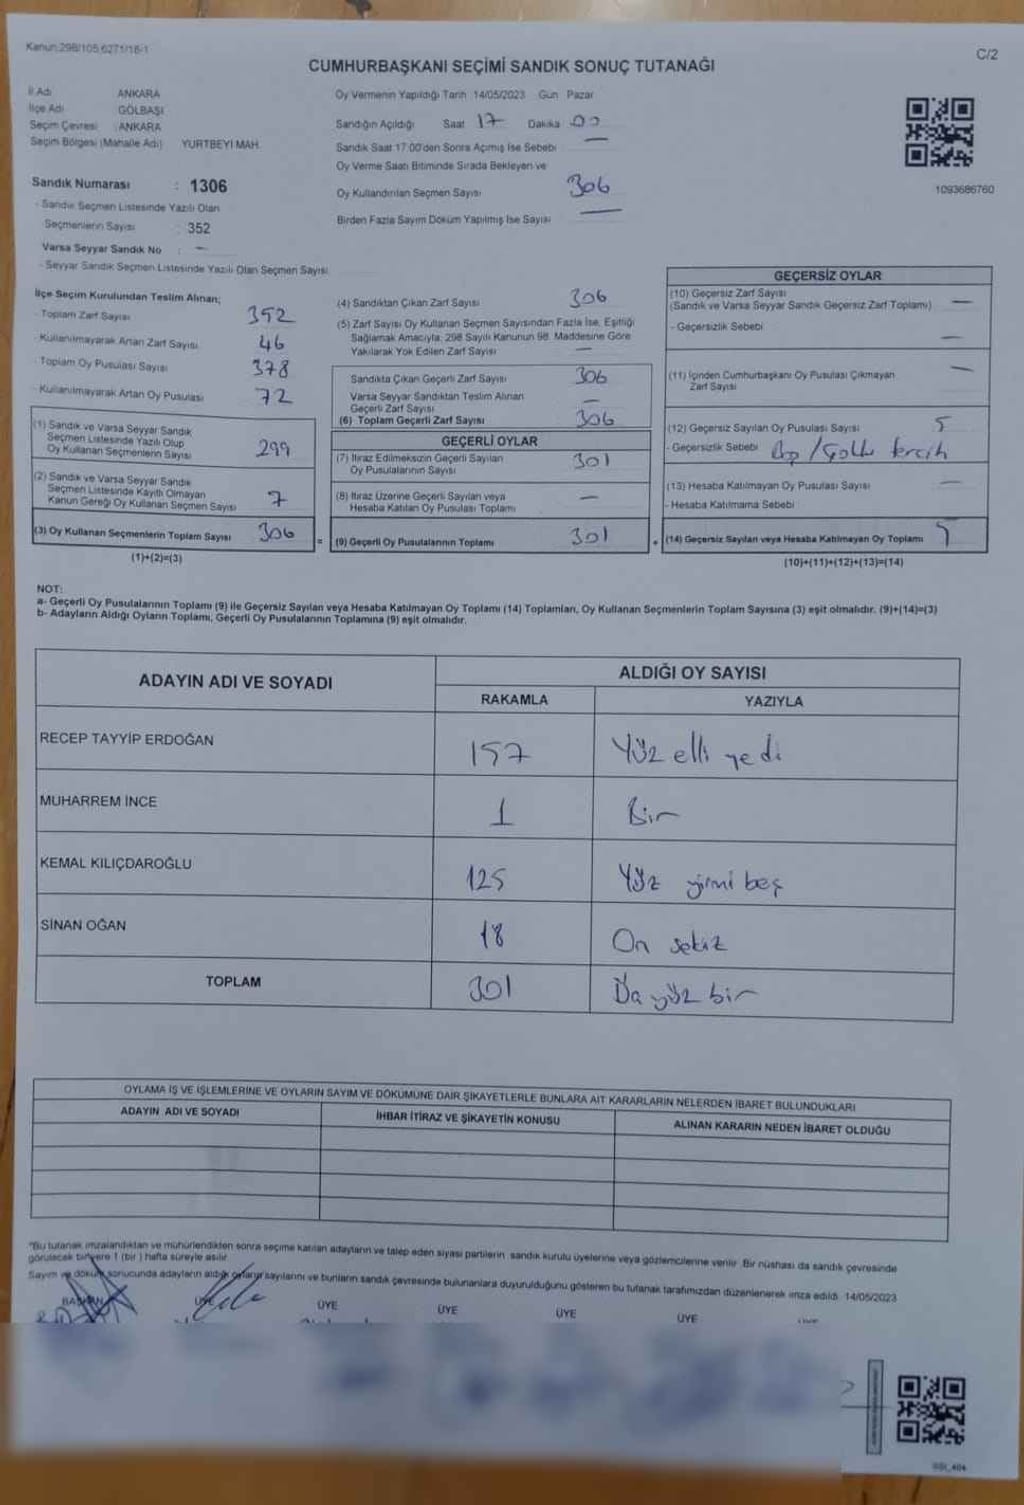 Kanun:298/105,6271/18-1
C/2
CUMHURBAŞKANI SEÇİMİ SANDIK SONUÇ TUTANAĞI
İl Adı ANKARA
İlçe Adı GÖLBAŞI
Seçim Çevresi : ANKARA
Seçim Bölgesi (Mahalle Adı) YURTBEYİ MAH.
Oy Vermenin Yapıldığı Tarih 14/05/2023 Gün Pazar
Sandığın Açıldığı Saat 17 Dakika 00
Sandık Saat 17:00'den Sonra Açımış İse Sebebi —
Oy Verme Saati Bitiminde Sırada Bekleyen ve
Oy Kullandırılan Seçmen Sayısı 306
Birden Fazla Sayım Döküm Yapılmış İse Sayısı —
1093686760
Sandık Numarası : 1306
- Sandık Seçmen Listesinde Yazılı Olan
Seçmenlerin Sayısı : 352
Varsa Seyyar Sandık No : —
- Seyyar Sandık Seçmen Listesinde Yazılı Olan Seçmen Sayısı
İlçe Seçim Kurulundan Teslim Alınan;
- Toplam Zarf Sayısı 352
- Kullanılmayarak Artan Zarf Sayısı 46
- Toplam Oy Pusulası Sayısı 378
- Kullanılmayarak Artan Oy Pusulası 72
(1) Sandık ve Varsa Seyyar Sandık
Seçmen Listesinde Yazılı Olup
Oy Kullanan Seçmenlerin Sayısı 299
(2) Sandık ve Varsa Seyyar Sandık
Seçmen Listesinde Kayıtlı Olmayan
Kanun Gereği Oy Kullanan Seçmen Sayısı 7
(3) Oy Kullanan Seçmenlerin Toplam Sayısı 306
(1)+(2)=(3)
(4) Sandıktan Çıkan Zarf Sayısı 306
(5) Zarf Sayısı Oy Kullanan Seçmen Sayısından Fazla İse, Eşitliği
Sağlamak Amacıyla, 298 Sayılı Kanunun 98. Maddesine Göre
Yakılarak Yok Edilen Zarf Sayısı —
Sandıkta Çıkan Geçerli Zarf Sayısı 306
Varsa Seyyar Sandıktan Teslim Alınan
Geçerli Zarf Sayısı —
(6) Toplam Geçerli Zarf Sayısı 306
GEÇERLİ OYLAR
(7) İtiraz Edilmeksizin Geçerli Sayılan
Oy Pusulalarının Sayısı 301
(8) İtiraz Üzerine Geçerli Sayılan veya
Hesaba Katılan Oy Pusulası Toplamı —
= (9) Geçerli Oy Pusulalarının Toplamı 301
GEÇERSİZ OYLAR
(10) Geçersiz Zarf Sayısı
(Sandık ve Varsa Seyyar Sandık Geçersiz Zarf Toplamı) —
- Geçersizlik Sebebi —
(11) İçinden Cumhurbaşkanı Oy Pusulası Çıkmayan
Zarf Sayısı —
(12) Geçersiz Sayılan Oy Pusulası Sayısı 5
- Geçersizlik Sebebi / tercih
(13) Hesaba Katılmayan Oy Pusulası Sayısı —
- Hesaba Katılmama Sebebi
+ (14) Geçersiz Sayılan veya Hesaba Katılmayan Oy Toplamı 5
(10)+(11)+(12)+(13)=(14)
NOT:
a- Geçerli Oy Pusulalarının Toplamı (9) ile Geçersiz Sayılan veya Hesaba Katılmayan Oy Toplamı (14) Toplamları, Oy Kullanan Seçmenlerin Toplam Sayısına (3) eşit olmalıdır. (9)+(14)=(3)
b- Adayların Aldığı Oyların Toplamı, Geçerli Oy Pusulalarının Toplamına (9) eşit olmalıdır.
ADAYIN ADI VE SOYADI ALDIĞI OY SAYISI
RAKAMLA YAZIYLA
RECEP TAYYİP ERDOĞAN 157 Yüz elli yedi
MUHARREM İNCE 1 Bir
KEMAL KILIÇDAROĞLU 125 Yüz yirmi beş
SİNAN OĞAN 18 On sekiz
TOPLAM 301 yüz bir
OYLAMA İŞ VE İŞLEMLERİNE VE OYLARIN SAYIM VE DÖKÜMÜNE DAİR ŞİKAYETLERLE BUNLARA AİT KARARLARIN NELERDEN İBARET BULUNDUKLARI
ADAYIN ADI VE SOYADI İHBAR İTİRAZ VE ŞİKAYETİN KONUSU ALINAN KARARIN NEDEN İBARET OLDUĞU
"Bu tutanak imzalandıktan ve mühürlendikten sonra seçime katılan adayların ve talep eden siyasi partilerin sandık kurulu üyelerine veya gözlemcilerine verilir. Bir nüshası da sandık çevresinde
görülecek bir yere 1 (bir) hafta süreyle asılır.
Sayım ve döküm sonucunda adayların aldığı oyların sayılarını ve bunların sandık çevresinde bulunanlara duyurulduğunu gösteren bu tutanak tarafımızdan düzenlenerek imza edildi. 14/05/2023
BAŞKAN ÜYE ÜYE ÜYE ÜYE ÜYE